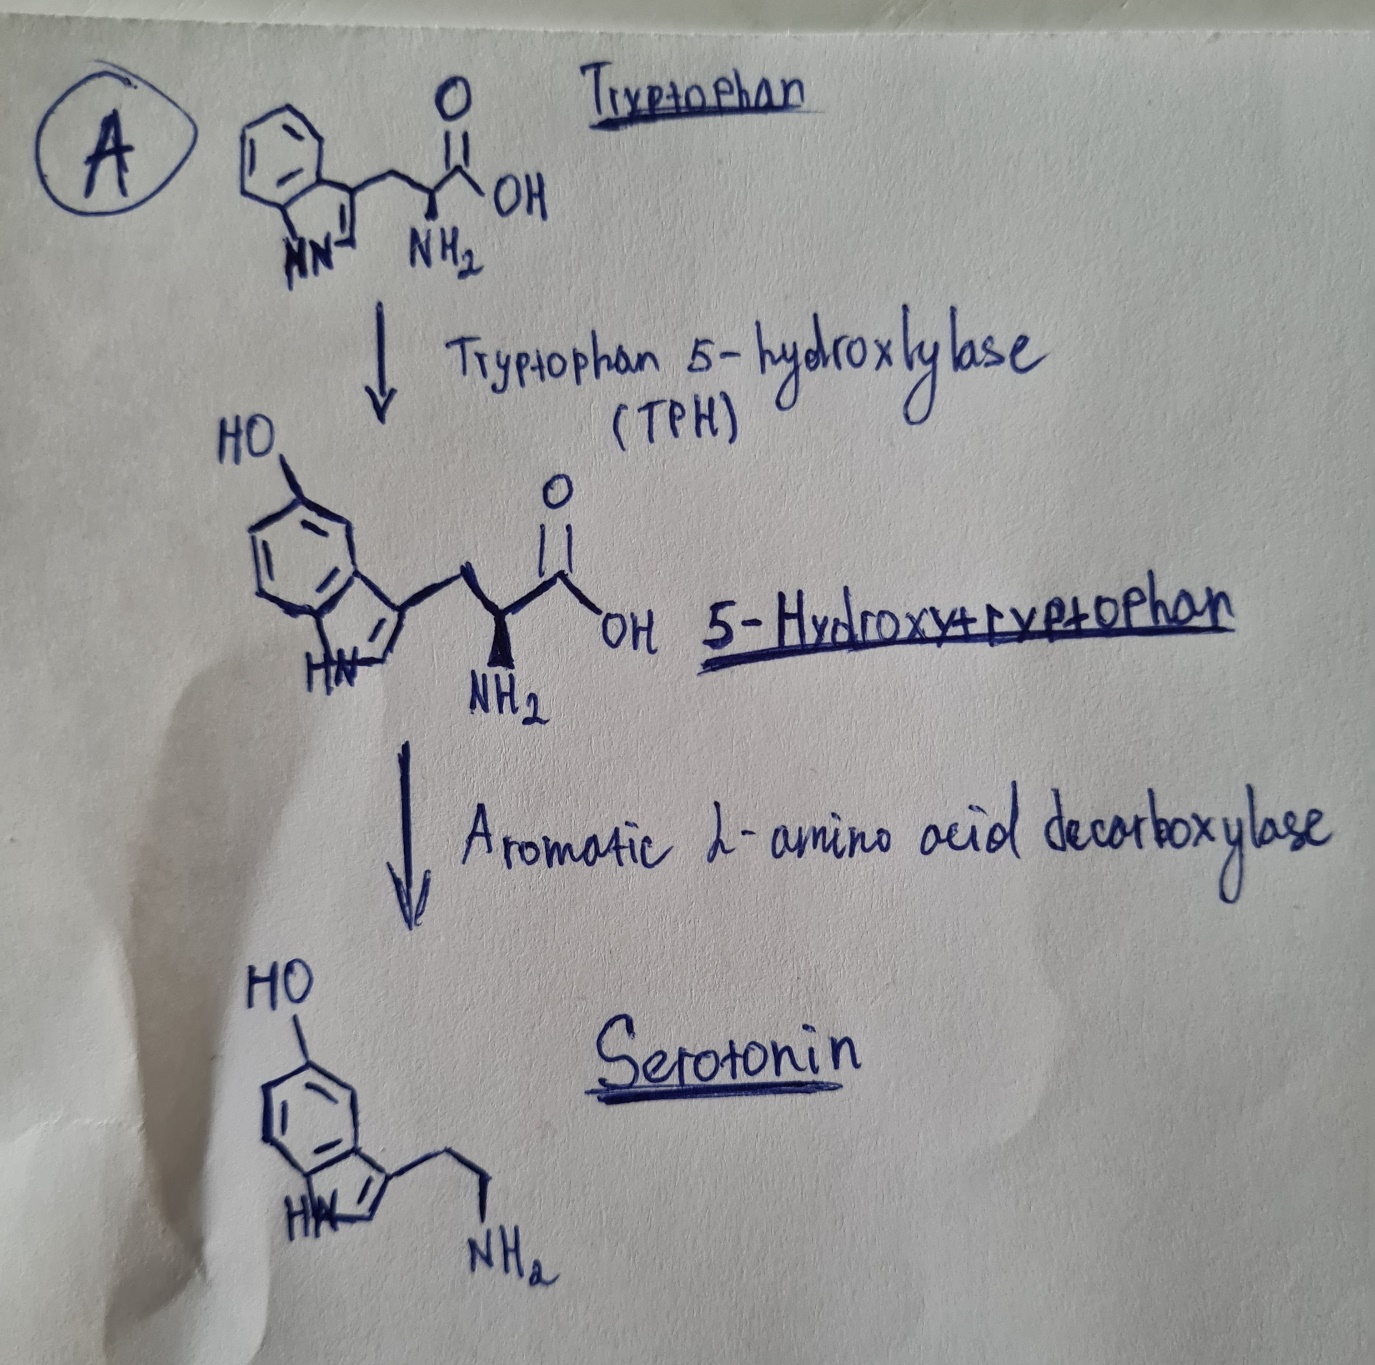 A
Tryptophan
O
OH
HN
NH2
Tryptophan 5-hydroxlylase
(TPH)
HO
O
OH
5-Hydroxytryptophan
HN
NH2
Aromatic L-amino acid decarboxylase
HO
Serotonin
HN
NH2